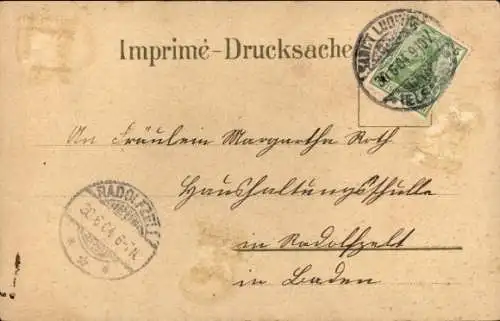 Imprimé-Drucksache
SANCT LUDWIG
30.6.04.
(ELS.)
An Fräulein Margaretha Roth
Haushaltungsschulle
in Radolfzelt
in Baden
RADOLFZELL
30.6.04. 6-7N.